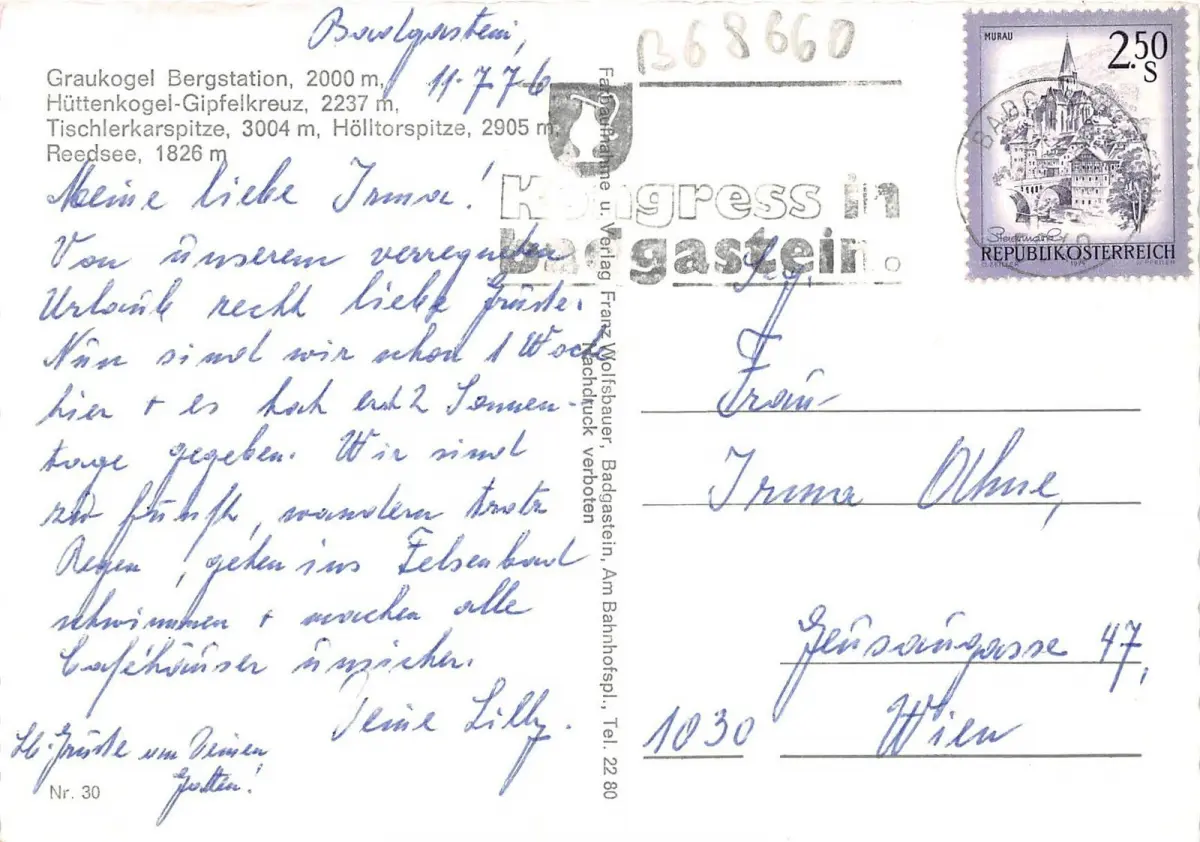 Badgastein,
11.7.76
Graukogel Bergstation, 2000 m,
Hüttenkogel-Gipfelkreuz, 2237 m,
Tischlerkarspitze, 3004 m, Hölltorspitze, 2905 m
Reedsee, 1826 m
Meine liebe Irma!
Von unserem verregneten
Urlaub recht liebe Grüße.
Nun sind wir schon 1 Woche
hier + es hat erst 2 Sonnen-
tage gegeben. Wir sind
zu fünft, wandern trotz
Regen, gehen ins Felsenbad
schwimmen + machen alle
Caféhäuser unsicher.
Deine Lilly.
Lb. Grüße
Deinen
Nr. 30
Farbaufnahme u. Verlag Franz Wolfsbauer, Badgastein, Am Bahnhofspl., Tel. 22 80
Nachdruck verboten
B68660
Kongress in
Badgastein.
MURAU
2.50
S
Steiermark
REPUBLIK ÖSTERREICH
Frau
Irma Ohne,
Geusaugasse 47,
1030 Wien